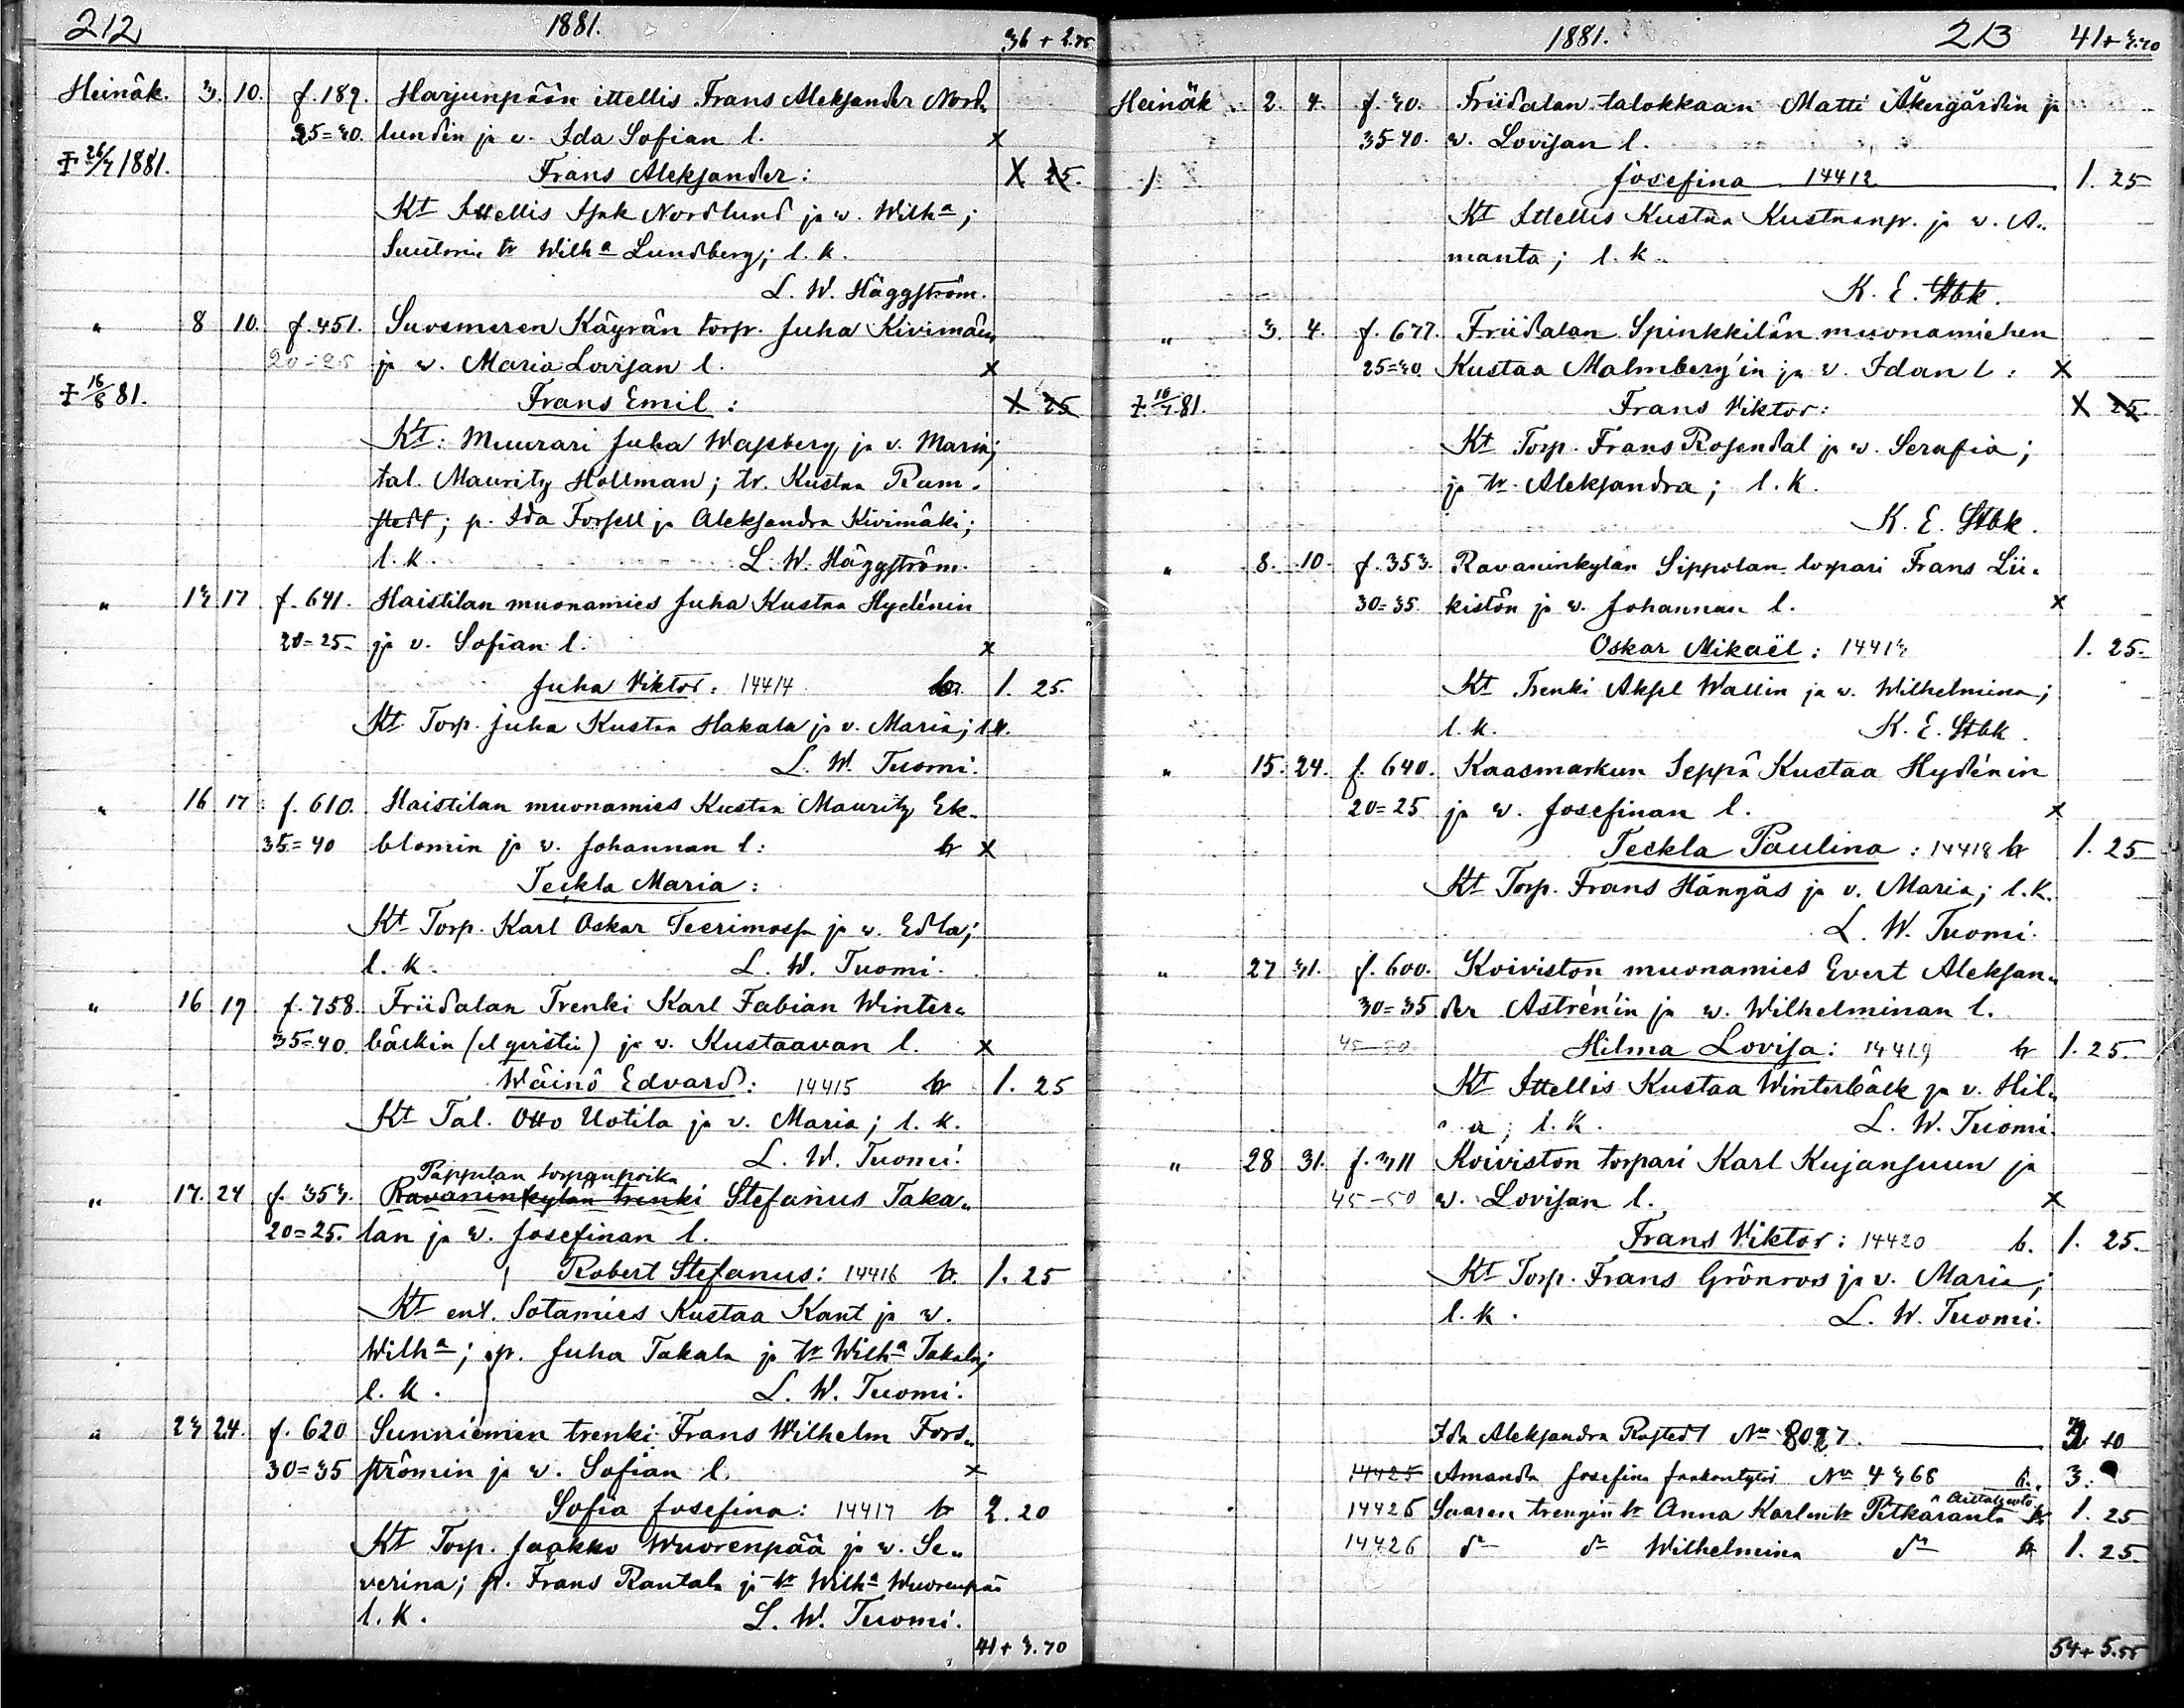 212 1881. 36 + 2.75
Heinäk. 3. 10. f. 189. Harjunpään ittellis Frans Aleksander Nord„
35=40. lundin ja v. Ida Sofian l. x
Ŧ 26/7 1881. Frans Aleksander: X 25.
Kt Ittellis Isak Nordlund ja v. Wilhª;
Suutarin tr Wilhª Lundberg; l. k.
L. W. Häggström.
„ 8 10. f. 451. Suosmeren Käyrän torp. Juha Kivimäen
20-25 ja v. Maria Lovisan l. x
Ŧ 16/8 81. Frans Emil: 1. 25
Kt: Muurari Juha Wassberg ja v. Maria;
tal. Mauritz Hollman; tr. Kustaa Ram„
stedt; p. Ida Forsell ja Aleksandra Kivimäki;
l. k. L. W. Häggström.
„ 13 17 f. 641. Haistilan muonamies Juha Kustaa Hydénin
20=25. ja v. Sofian l. x
Juha Viktor: 14414 1. 25.
Kt Torp. Juha Kustaa Hakala ja v. Maria; l.k.
L. W. Tuomi.
„ 16 17 f. 610. Haistilan muonamies Kustaa Mauritz Ek„
35=40 blomin ja v. Johannan l: tr x
Teckla Maria:
Kt Torp. Karl Oskar Teerimossa ja v. Edla;
l. k. L. W. Tuomi.
„ 16 17 f. 758. Friidalan Trenki Karl Fabian Winter„
35=40. bäckin ja v. Kustaavan l. x
Wäinö Edvard: 14415 tr 1. 25
Kt Tal. Otto Uotila ja v. Maria; l. k.
L. W. Tuomi.
Pappilan torpanpoika
„ 17. 24 f. 353. Ravaninkylän trenki Stefanus Taka„
20=25. lan ja v. Josefinan l.
Robert Stefanus: 14416 tr. 1. 25
Kt ent. Sotamies Kustaa Kant ja v.
Wilhª; p. Juha Takala ja tr Wilhª Takala;
l. k. L. W. Tuomi.
„ 23 24. f. 620 Sunniemen trenki Frans Wilhelm Fors„
30=35 strömin ja v. Sofian l. x
Sofia Josefina: 14417 tr 2. 20
Kt Torp. Jaakko Wuorenpää ja v. Se„
verina; p. Frans Rantala ja tr Wilhª Wuorenpää
l. k. L. W. Tuomi.
41 + 3.70
1881. 213 41 + 3.70
Heinäk 2. 4. f. 40. Friidalan talokkaan Matti Åkergårdin ja
35-40. v. Lovisan l.
Josefina 14412 1. 25
Kt Ittellis Kustaa Kustaanp. ja v. A„
manta; l. k.
K. E. Stbk.
„ 3. 4. f. 677. Friidalan Spinkkilän muonamiehen
25=30 Kustaa Malmberg'in ja v. Idan l: x
Ŧ 10/7 81. Frans Viktor: X 25.
Kt Torp. Frans Rosendal ja v. Serafia;
ja tr. Aleksandra; l. k.
K. E. Stbk.
„ 8. 10. f. 353. Ravaninkylän Sippolan torpari Frans Lii„
30=35. kistön ja v. Johannan l. x
Oskar Mikaël: 14413 1. 25.
Kt Trenki Aksel Wallin ja v. Wilhelmina;
l. k. K. E. Stbk.
„ 15. 24. f. 640. Kaasmarkun Seppä Kustaa Hydénin
20=25 ja v. Josefinan l. x
Teckla Paulina: 14418 tr 1. 25
Kt Torp. Frans Hångås ja v. Maria; l. k.
L. W. Tuomi.
„ 27 31. f. 600. Koiviston muonamies Evert Aleksan„
30=35 der Astrén'in ja v. Wilhelminan l.
45-50 Hilma Lovisa: 14419 tr 1. 25.
Kt Ittellis Kustaa Winterbäck ja v. Hil„
a; l. k. L. W. Tuomi.
„ 28 31. f. 311 Koiviston torpari Karl Kujansuun ja
45-50 v. Lovisan l. x
Frans Viktor: 14420 tr. 1. 25.
Kt Torp. Frans Grönroos ja v. Maria;
l. k. L. W. Tuomi.
Ida Aleksandra Rostedt No 8027. 40
14425 Amanda Josefina No 4368 3.
14426 Saaren trengin tr Anna Karlentr Pitkäranta tr 1. 25
14426 do do Wilhelmina do tr 1. 25.
54 + 5.55